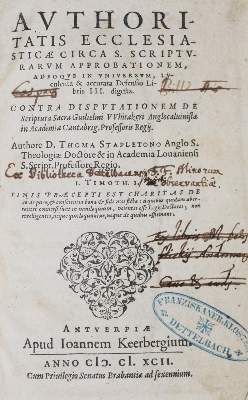 AVTHORI-
TATIS ECCLESIA-
STICÆ CIRCA S. SCRIPTV-
RARVM APPROBATIONEM,
ADEOQVE IN VNIVERSVM, LV-
culenta & accurata Defensio Li-
bris III. digesta.
CONTRA DISPVTATIONEM DE
Scriptura Sacra Guilielmi VVhitakeri Anglocaluinistæ
in Academia Cantabrig. Professoris Regij.
Authore D. THOMA STAPLETONO Anglo S.
Theologiæ Doctore & in Academia Louaniensi
S. Script. Professore Regio.
Ex Bibliotheca Dettelbacensi F.F. Minorum
Observantiæ.
I. TIMOTH. I.
FINIS PRÆCEPTI EST CHARITAS DE
corde puro, & conscientia bona & fide non ficta: à quibus quidam aber-
rantes conuersi sunt in vaniloquium, volentes esse Legis Doctores, non
intelligentes, neque quæ loquuntur, neque de quibus affirmant.
FRANZISKANERKLOSTER
DETTELBACH
ANTVERPIÆ
Apud Ioannem Keerbergium.
ANNO CIↃ. IↃ. XCII.
Cum Priuilegio Senatus Brabantiæ ad sexennium.